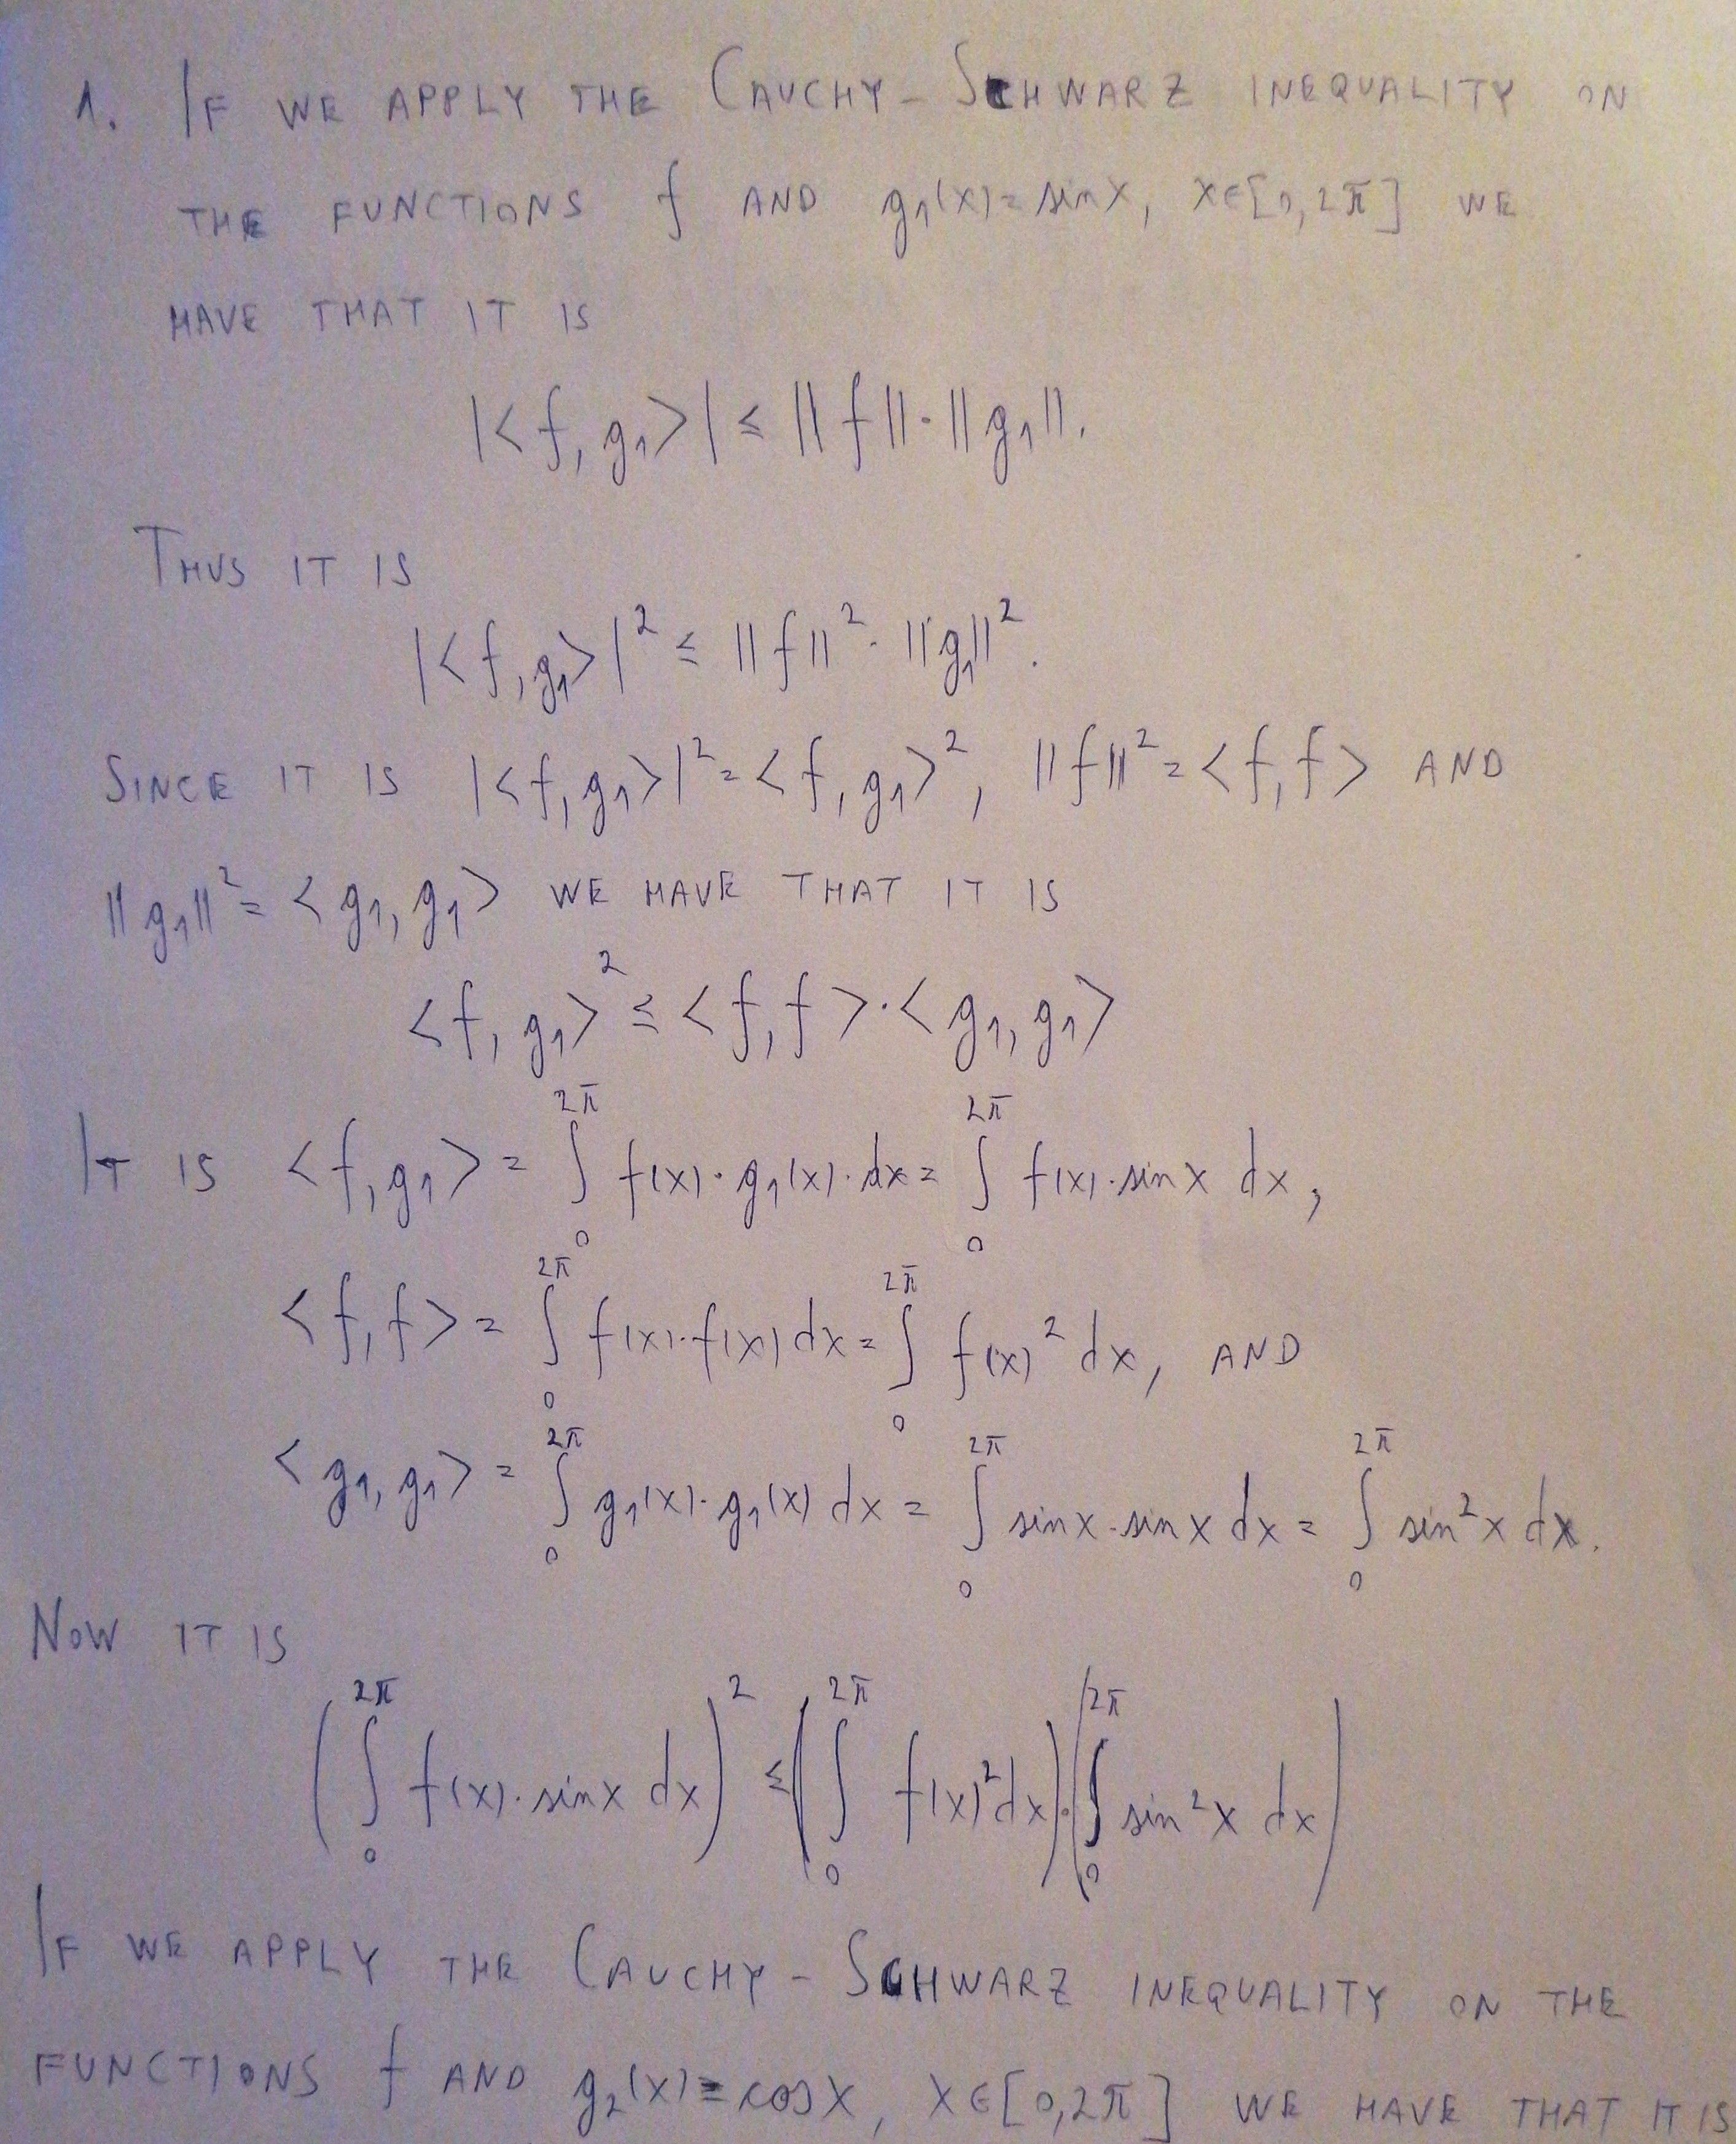 1. IF WE APPLY THE CAUCHY-SCHWARZ INEQUALITY ON
THE FUNCTIONS f AND g₁(x)=sinx, x∈[0,2π] WE
HAVE THAT IT IS
|<f,g₁>| ≤ ||f||·||g₁||.
THUS IT IS
|<f,g₁>|² ≤ ||f||²·||g₁||².
SINCE IT IS |<f,g₁>|²=<f,g₁>², ||f||²=<f,f> AND
||g₁||²=<g₁,g₁> WE HAVE THAT IT IS
<f,g₁>² ≤ <f,f>·<g₁,g₁>
IT IS <f,g₁> = ∫₀^{2π} f(x)·g₁(x)·dx = ∫₀^{2π} f(x)·sinx dx,
<f,f> = ∫₀^{2π} f(x)·f(x) dx = ∫₀^{2π} f(x)² dx, AND
<g₁,g₁> = ∫₀^{2π} g₁(x)·g₁(x) dx = ∫₀^{2π} sinx·sinx dx = ∫₀^{2π} sin²x dx.
NOW IT IS
(∫₀^{2π} f(x)·sinx dx)² ≤ (∫₀^{2π} f(x)²dx)·(∫₀^{2π} sin²x dx)
IF WE APPLY THE CAUCHY-SCHWARZ INEQUALITY ON THE
FUNCTIONS f AND g₂(x)=cosx, x∈[0,2π] WE HAVE THAT IT IS